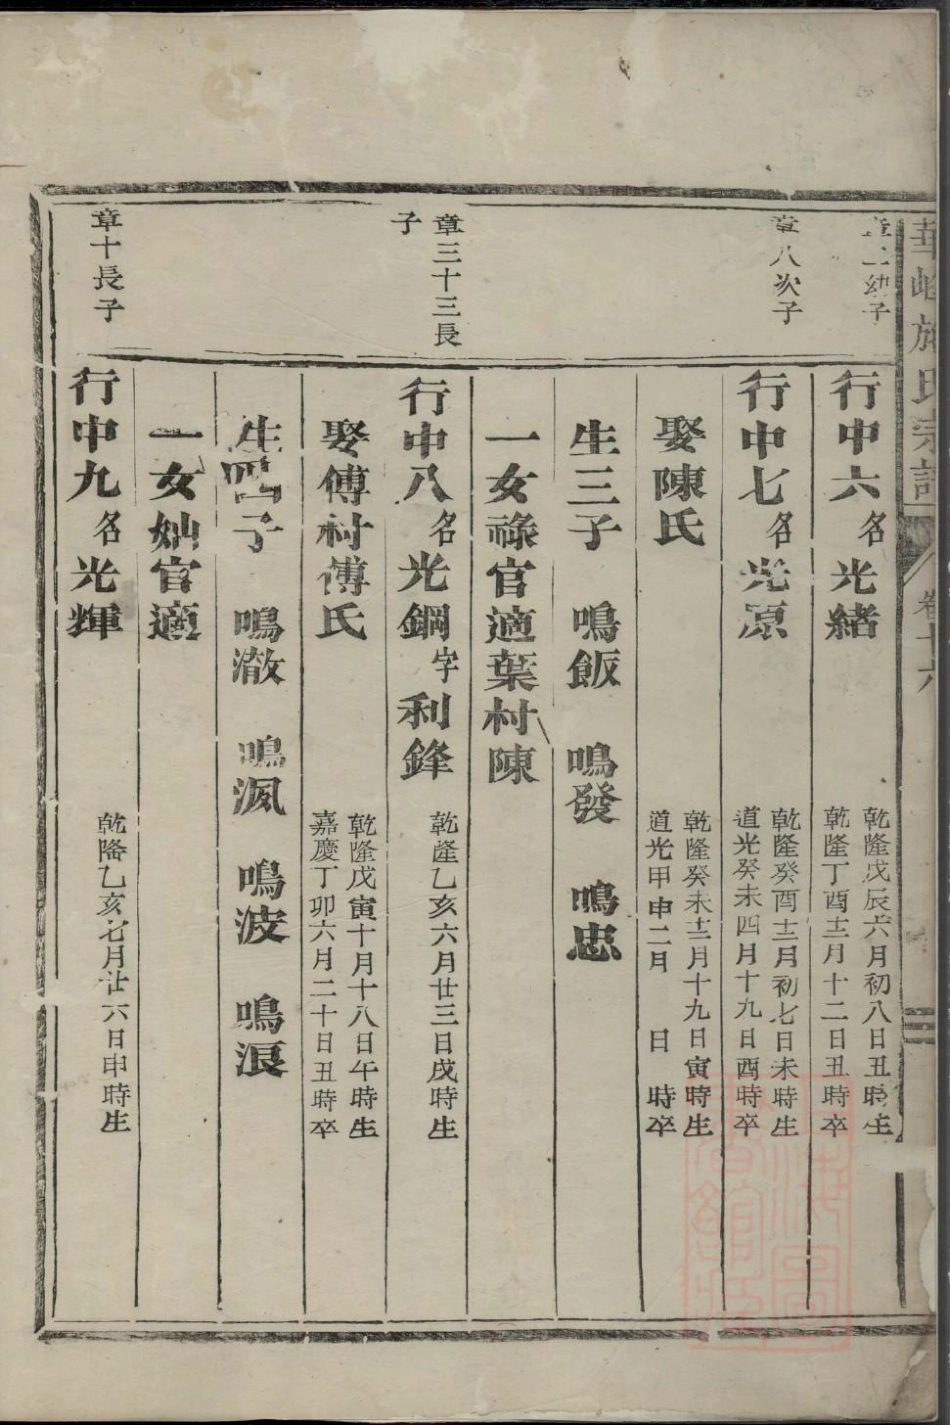 施氏宗譜 卷十六
章二幼子
行中六名光緒
乾隆戊辰六月初八日丑時生
乾隆丁酉十二月十二日丑時卒
章八次子
行中七名光原
乾隆癸酉十二月初七日未時生
道光癸未四月十九日酉時卒
娶陳氏
乾隆癸未十二月十九日寅時生
道光甲申二月 日 時卒
生三子 鳴飯 鳴發 鳴忠
一女祿官適葉村陳
章三十三長子
行中八名光鋼字利鋒
乾隆乙亥六月廿三日戌時生
娶傅村傅氏
乾隆戊寅十月十八日午時生
嘉慶丁卯六月二十日丑時卒
生四子 鳴澈 鳴沨 鳴波 鳴浪
一女妯官適
章十長子
行中九名光輝
乾隆乙亥七月廿六日申時生